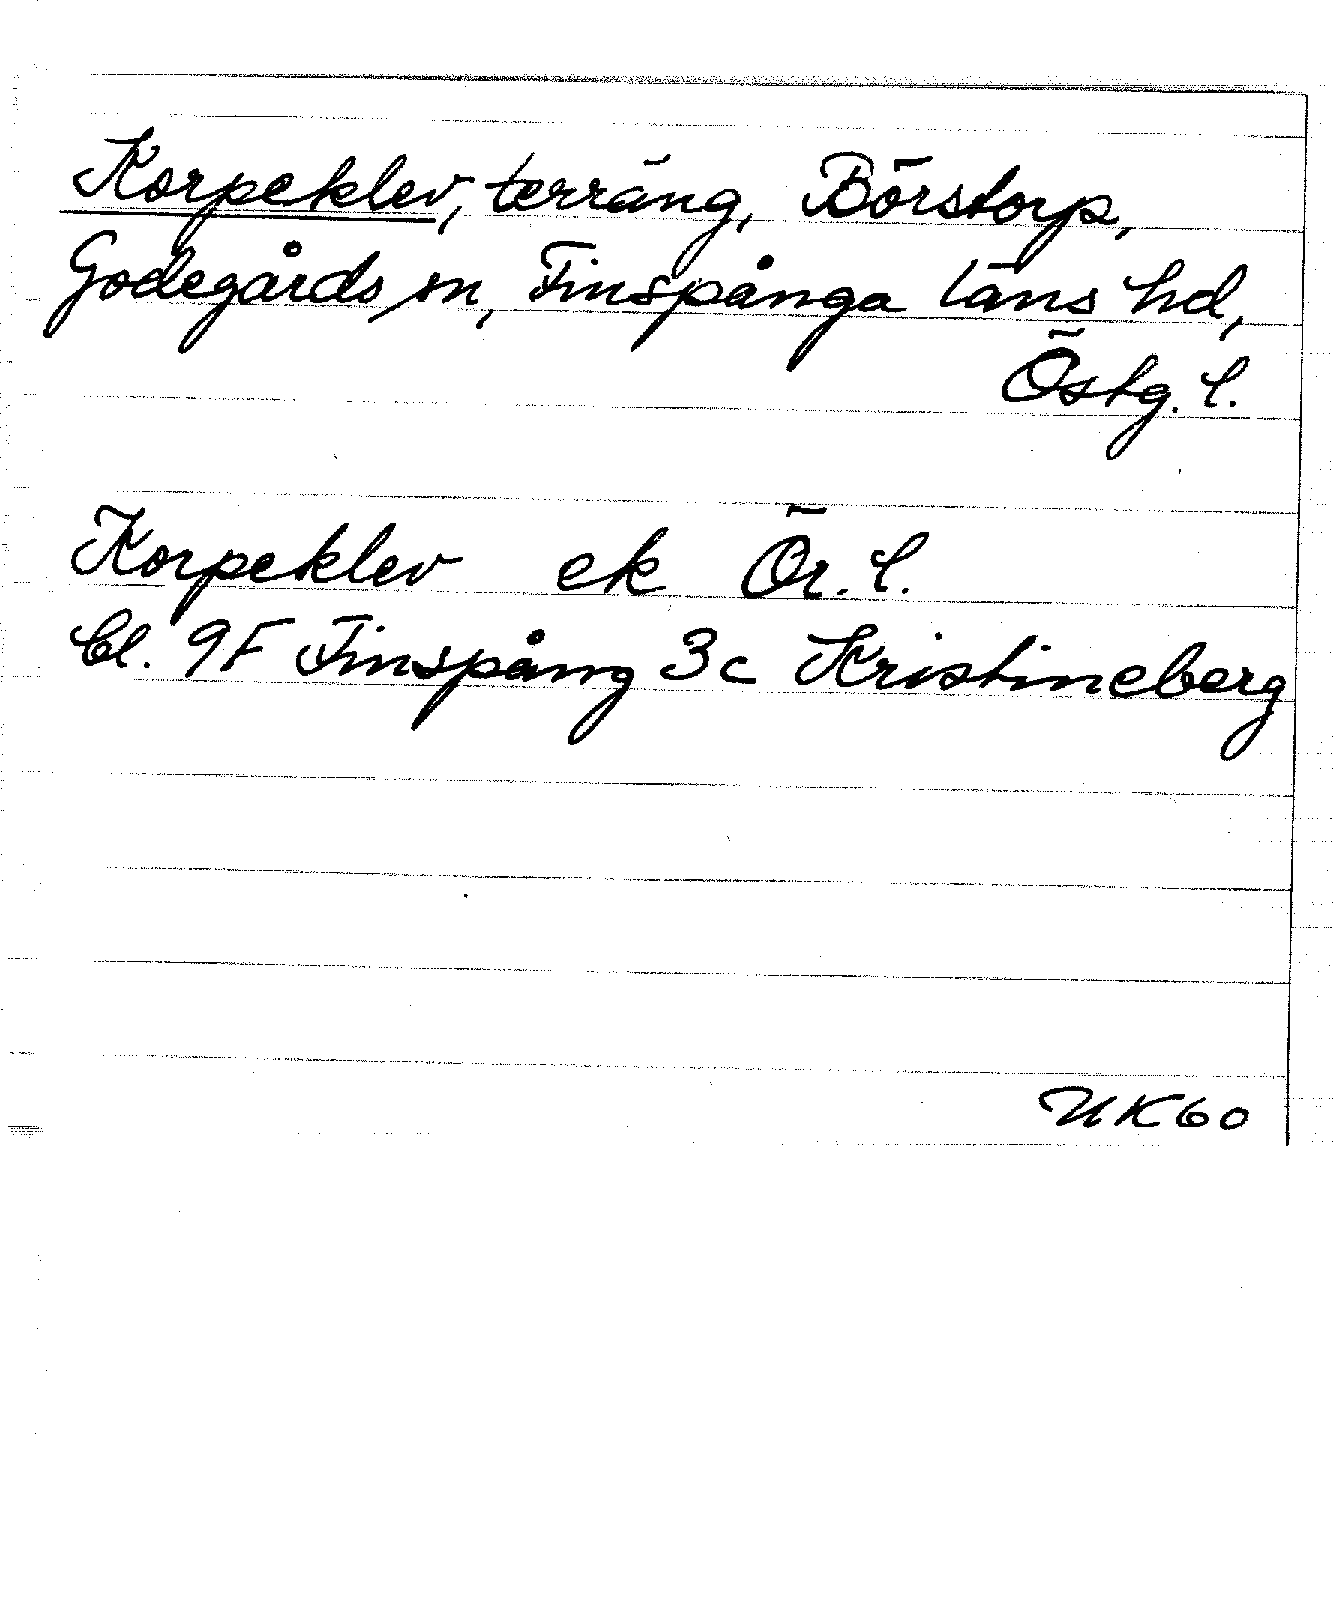 Korpeklev, terräng, Börstorp,
Godegårds sn, Finspånga läns hd,
Östg. l.
Korpeklev ek Ör. l.
bl. 9F Finspång 3c Kristineberg
UK60